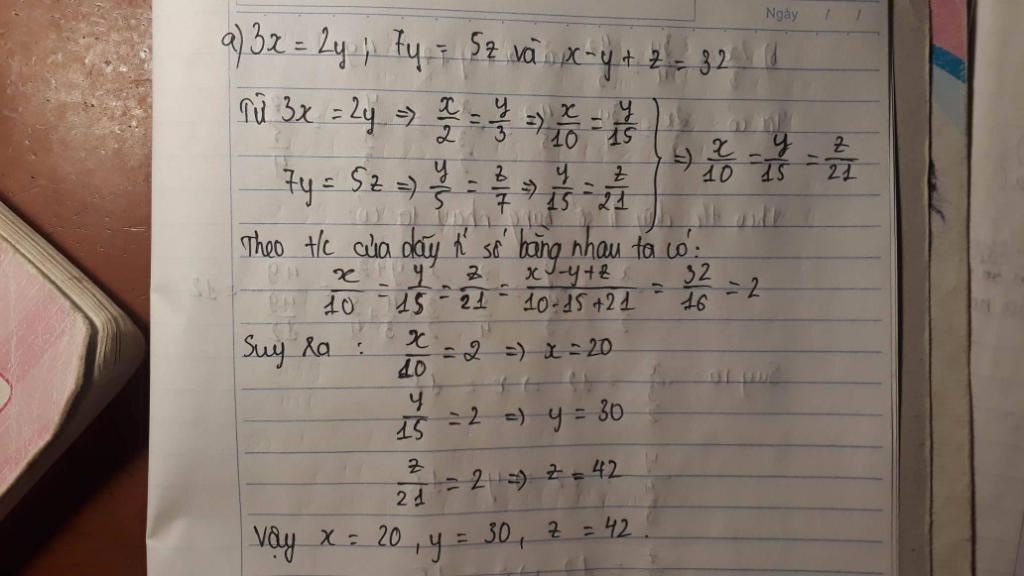 Ngày / /
a) 3x = 2y ; 7y = 5z và x - y + z = 32
Từ 3x = 2y => x/2 = y/3 => x/10 = y/15
7y = 5z => y/5 = z/7 => y/15 = z/21
} => x/10 = y/15 = z/21
Theo t/c của dãy tỉ số bằng nhau ta có:
x/10 = y/15 = z/21 = (x - y + z)/(10 - 15 + 21) = 32/16 = 2
Suy ra : x/10 = 2 => x = 20
y/15 = 2 => y = 30
z/21 = 2 => z = 42
Vậy x = 20 , y = 30 , z = 42 .